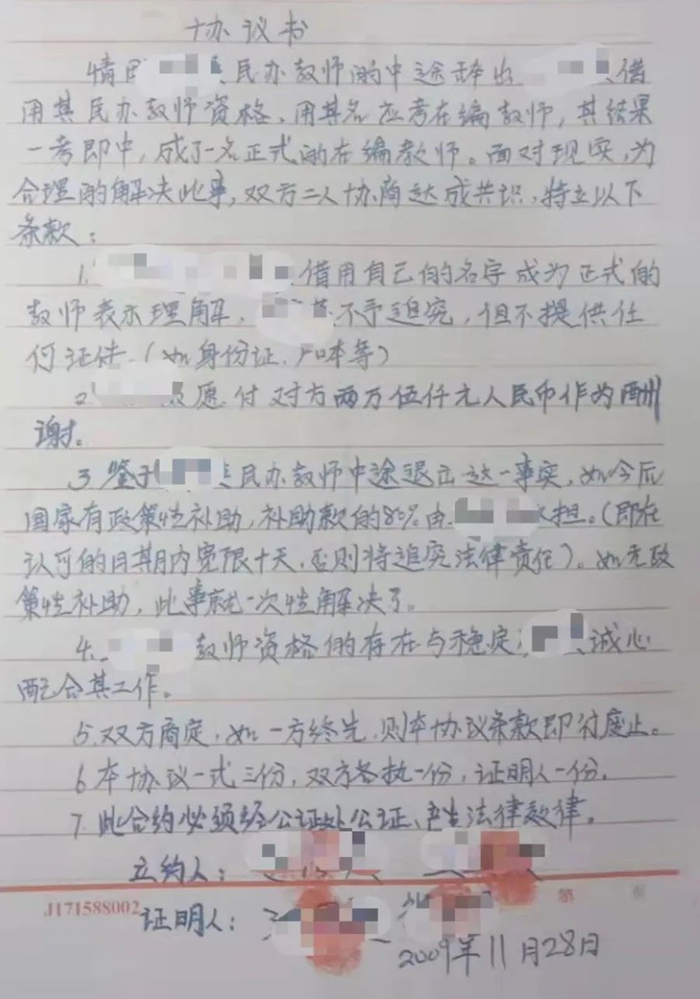 协议书
情因 民办教师的中途辞出 借
用其民办教师资格、用其名应考在编教师,其结果
一考即中,成了一名正式的在编教师。面对现实,为
合理的解决此事,双方二人协商达成共识,特立以下
条款:
1. 借用自己的名字成为正式的
教师表示理解, 不予追究,但不提供任
何证件.(如身份证、户口本等)
2. 愿付对方两万伍仟元人民币作为酬
谢。
3.鉴于 民办教师中途退出这一事实,如今后
国家有政策性补助,补助款的80%由 担.(即在
认可的日期内宽限十天,否则将追究法律责任)。如无政
策性补助,此事就一次性解决了。
4. 教师资格的存在与稳定, 诚心
配合其工作。
5.双方商定,如一方终先,则本协议条款即行废止。
6.本协议一式三份,双方各执一份,证明人一份.
7.此合约必须经公证处公证、产生法律效律。
立约人:
J171588002 第 页
证明人:
2009年11月28日